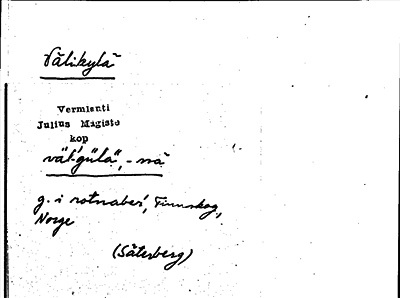 Välikylä
Vermlanti
Julius Mägiste
kop
väl'gülä, -nä
g. i rotnaberi, Finnskog,
Norge
(Säterberg)